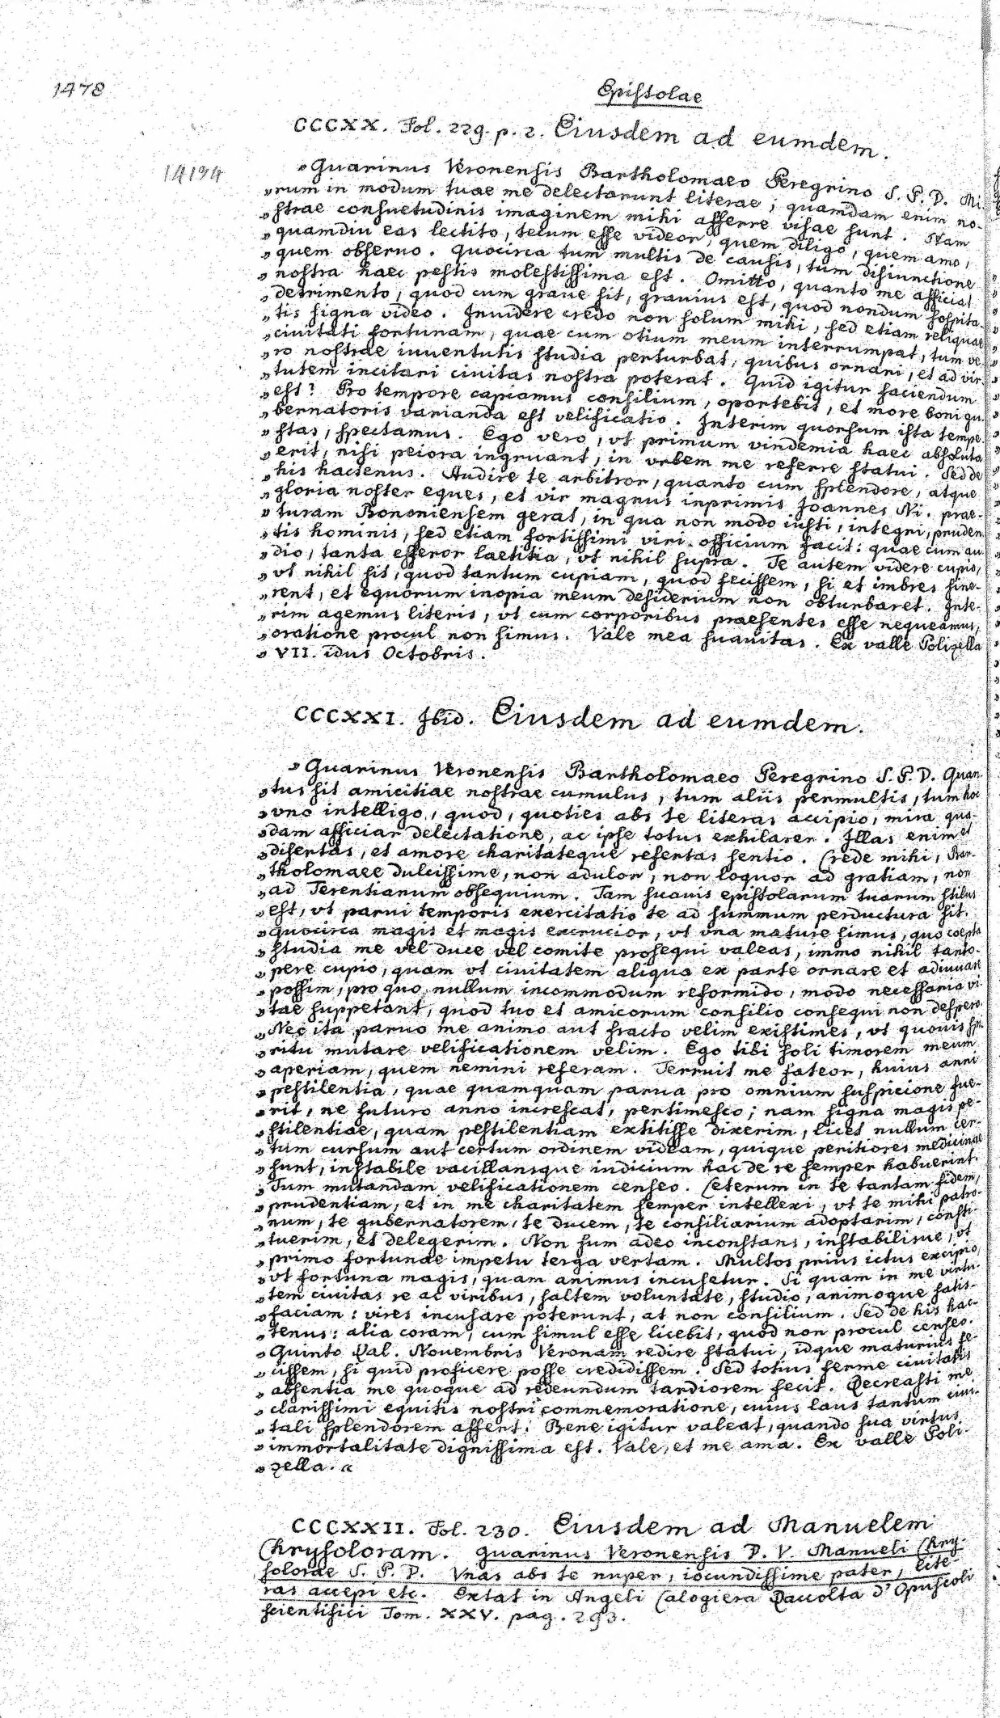 1478
Epistolae
CCCXX. Fol. 229. p. 2. Eiusdem ad eumdem.
14194
„Guarinus Veronensis Bartholomaeo Peregrino S. P. D. Mi-
„rum in modum tuae me delectarunt literae; quamdam enim no-
„strae consuetudinis imaginem mihi afferre visae sunt. Nam
„quamdiu eas lectito, tecum esse videor, quem diligo, quem amo,
„quem obseruo. Quocirca tum multis de causis, tum disiunctione
„nostra haec pestis molestissima est. Omitto, quanto me afficiat
„detrimento, quod cum graue sit, grauius est, quod nondum sospita-
„tis signa video. Inuidere credo non solum mihi, sed etiam reliquae
„ciuitati fortunam, quae cum otium meum interrumpat, tum ve-
„ro nostrae iuuentutis studia perturbat, quibus ornari, et ad vir-
„tutem incitari ciuitas nostra poterat. Quid igitur faciendum
„est? Pro tempore capiamus consilium, oportebit, et more boni gu-
„bernatoris varianda est velificatio. Interim quorsum ista tempe-
„stas, spectamus. Ego vero, vt primum vindemia haec absoluta
„erit, nisi peiora ingruant, in vrbem me referre statui. Sed de
„his hactenus. Audire te arbitror, quanto cum splendore, atque
„gloria noster eques, et vir magnus inprimis Joannes Ni. prae-
„turam Bononiensem gerat, in qua non modo iusti, integri, pruden-
„tis hominis, sed etiam fortissimi viri officium facit: quae cum au-
„dio, tanta efferor laetitia, vt nihil supra. Te autem videre cupio,
„vt nihil sit, quod tantum cupiam, quod fecissem, si et imbres sine-
„rent, et equorum inopia meum desiderium non obturbaret. Inte-
„rim agemus literis, vt cum corporibus praesentes esse nequeamus,
„oratione procul non simus. Vale mea suauitas. Ex valle Polizella
„VII. idus Octobris.
CCCXXI. Ibid. Eiusdem ad eumdem.
„Guarinus Veronensis Bartholomaeo Peregrino S. P. D. Quan-
„tus sit amicitiae nostrae cumulus, tum aliis permultis, tum hoc
„vno intelligo, quod, quoties abs te literas accipio, mira qua-
„dam afficiar delectatione, ac ipse totus exhilarer. Illas enim et
„disertas, et amore charitateque refertas sentio. Crede mihi, Bar-
„tholomaee dulcissime, non adulor, non loquor ad gratiam, non
„ad Terentianum obsequium. Tam suauis epistolarum tuarum stilus
„est, vt parui temporis exercitatio te ad summum perductura sit.
„quocirca magis et magis excrucior, vt vna mature simus, quo coepta
„studia me vel duce vel comite prosequi valeas, immo nihil tanto-
„pere cupio, quam vt ciuitatem aliqua ex parte ornare et adiuuare
„possim, pro quo nullum incommodum reformido, modo necessaria vi-
„tae suppetant, quod tuo et amicorum consilio consequi non despero.
„Nec ita paruo me animo aut fracto velim existimes, vt quouis spi-
„ritu mutare velificationem velim. Ego tibi soli timorem meum
„aperiam, quem nemini referam. Terruit me fateor, huius anni
„pestilentia, quae quamquam parua pro omnium suspicione fue-
„rit, ne futuro anno increscat, pertimesco; nam signa magis pe-
„stilentiae, quam pestilentiam extitisse dixerim, licet nullum cer-
„tum cursum aut certum ordinem videam, quique peritiores medicinae
„sunt, instabile vacillansque iudicium hac de re semper habuerint.
„Tum mutandam velificationem censeo. Ceterum in te tantam fidem,
„prudentiam, et in me charitatem semper intellexi, vt te mihi patro-
„num, te gubernatorem, te ducem, te consiliarium adoptarim, consti-
„tuerim, et delegerim. Non sum adeo inconstans, instabilisue, vt
„primo fortunae impetu terga vertam. Multos prius ictus excipio,
„vt fortuna magis, quam animus incusetur. Si quam in me virtu-
„tem ciuitas re ac viribus, saltem voluntate, studio, animoque satis-
„faciam: vires incusare poterunt, at non consilium. Sed de his hac-
„tenus: alia coram, cum simul esse licebit, quod non procul censeo.
„Quinto Kal. Novembris Veronam redire statui, idque maturius fe-
„cissem, si quid proficere posse credidissem. Sed totius ferme ciuitatis
„absentia me quoque ad redeundum tardiorem fecit. Recreasti me
„clarissimi equitis nostri commemoratione, cuius laus tantum ciui-
„tati splendorem affert: Bene igitur valeat, quando sua virtus
„immortalitate dignissima est. Vale, et me ama. Ex valle Poli-
„zella.
CCCXXII. Fol. 230. Eiusdem ad Manuelem
Chrysoloram. Guarinus Veronensis D. V. Manueli Chry-
solorae S. P. D. Vnas abs te nuper, iocundissime pater, lite-
ras accepi etc. Extat in Angeli Calogiera Raccolta d'Opuscoli
scientifici Tom. XXV. pag. 293.